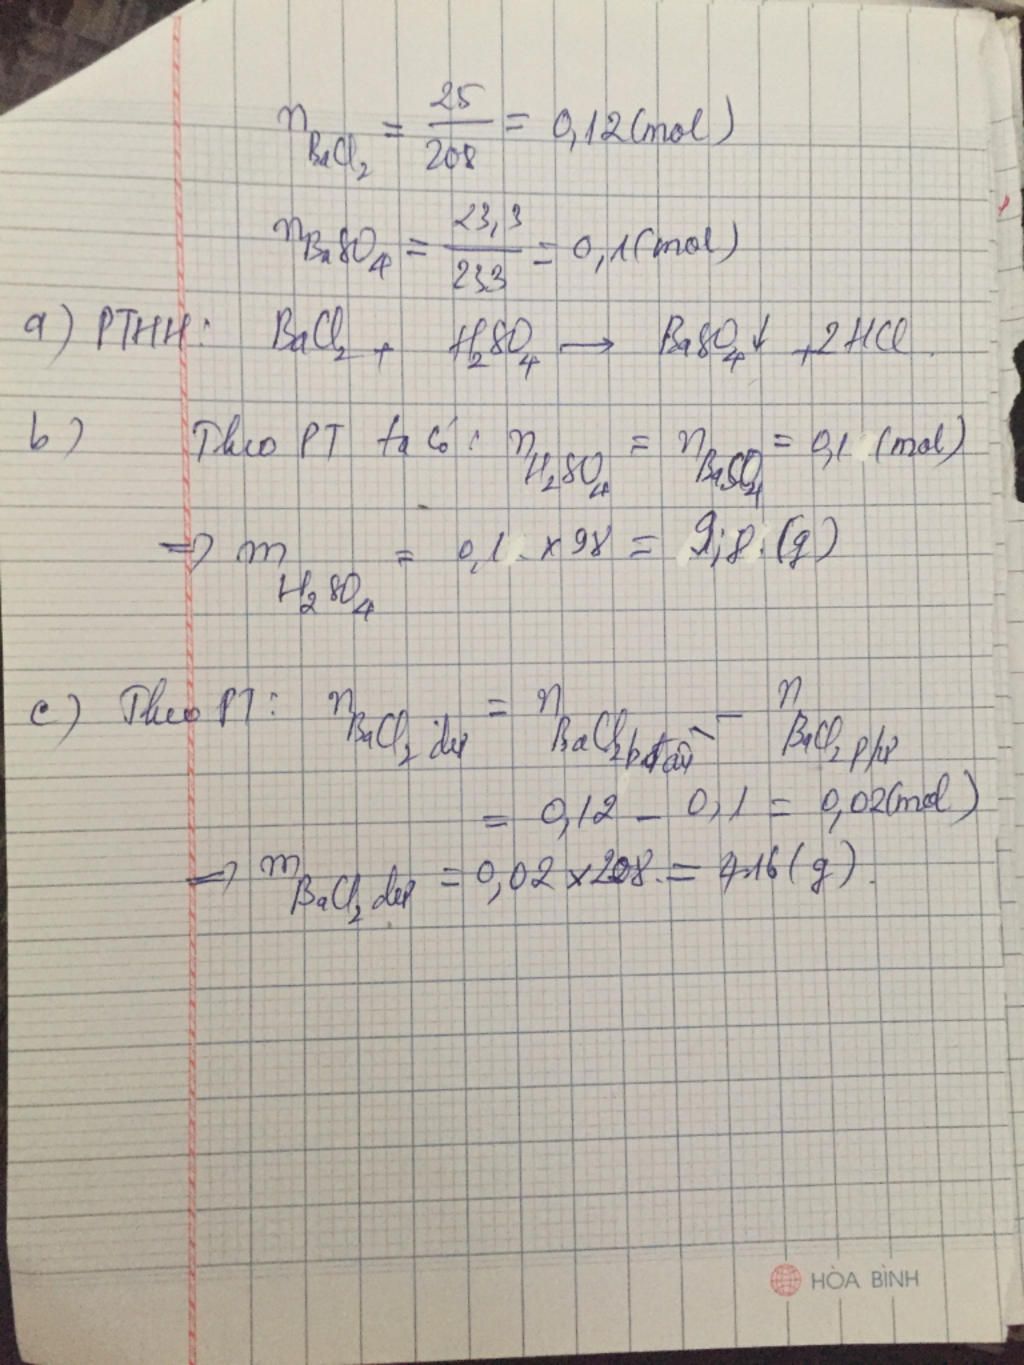 n BaCl₂ = 25/208 = 0,12 (mol)
n BaSO₄ = 23,3/233 = 0,1 (mol)
a) PTHH: BaCl₂ + H₂SO₄ → BaSO₄↓ + 2HCl.
b) Theo PT ta có: n H₂SO₄ = n BaSO₄ = 0,1 (mol)
=> m H₂SO₄ = 0,1 x 98 = 9,8 (g)
c) Theo PT: n BaCl₂ dư = n BaCl₂ bđầu - n BaCl₂ p/ư
= 0,12 - 0,1 = 0,02 (mol)
=> m BaCl₂ dư = 0,02 x 208 = 4.16 (g).
HÒA BÌNH